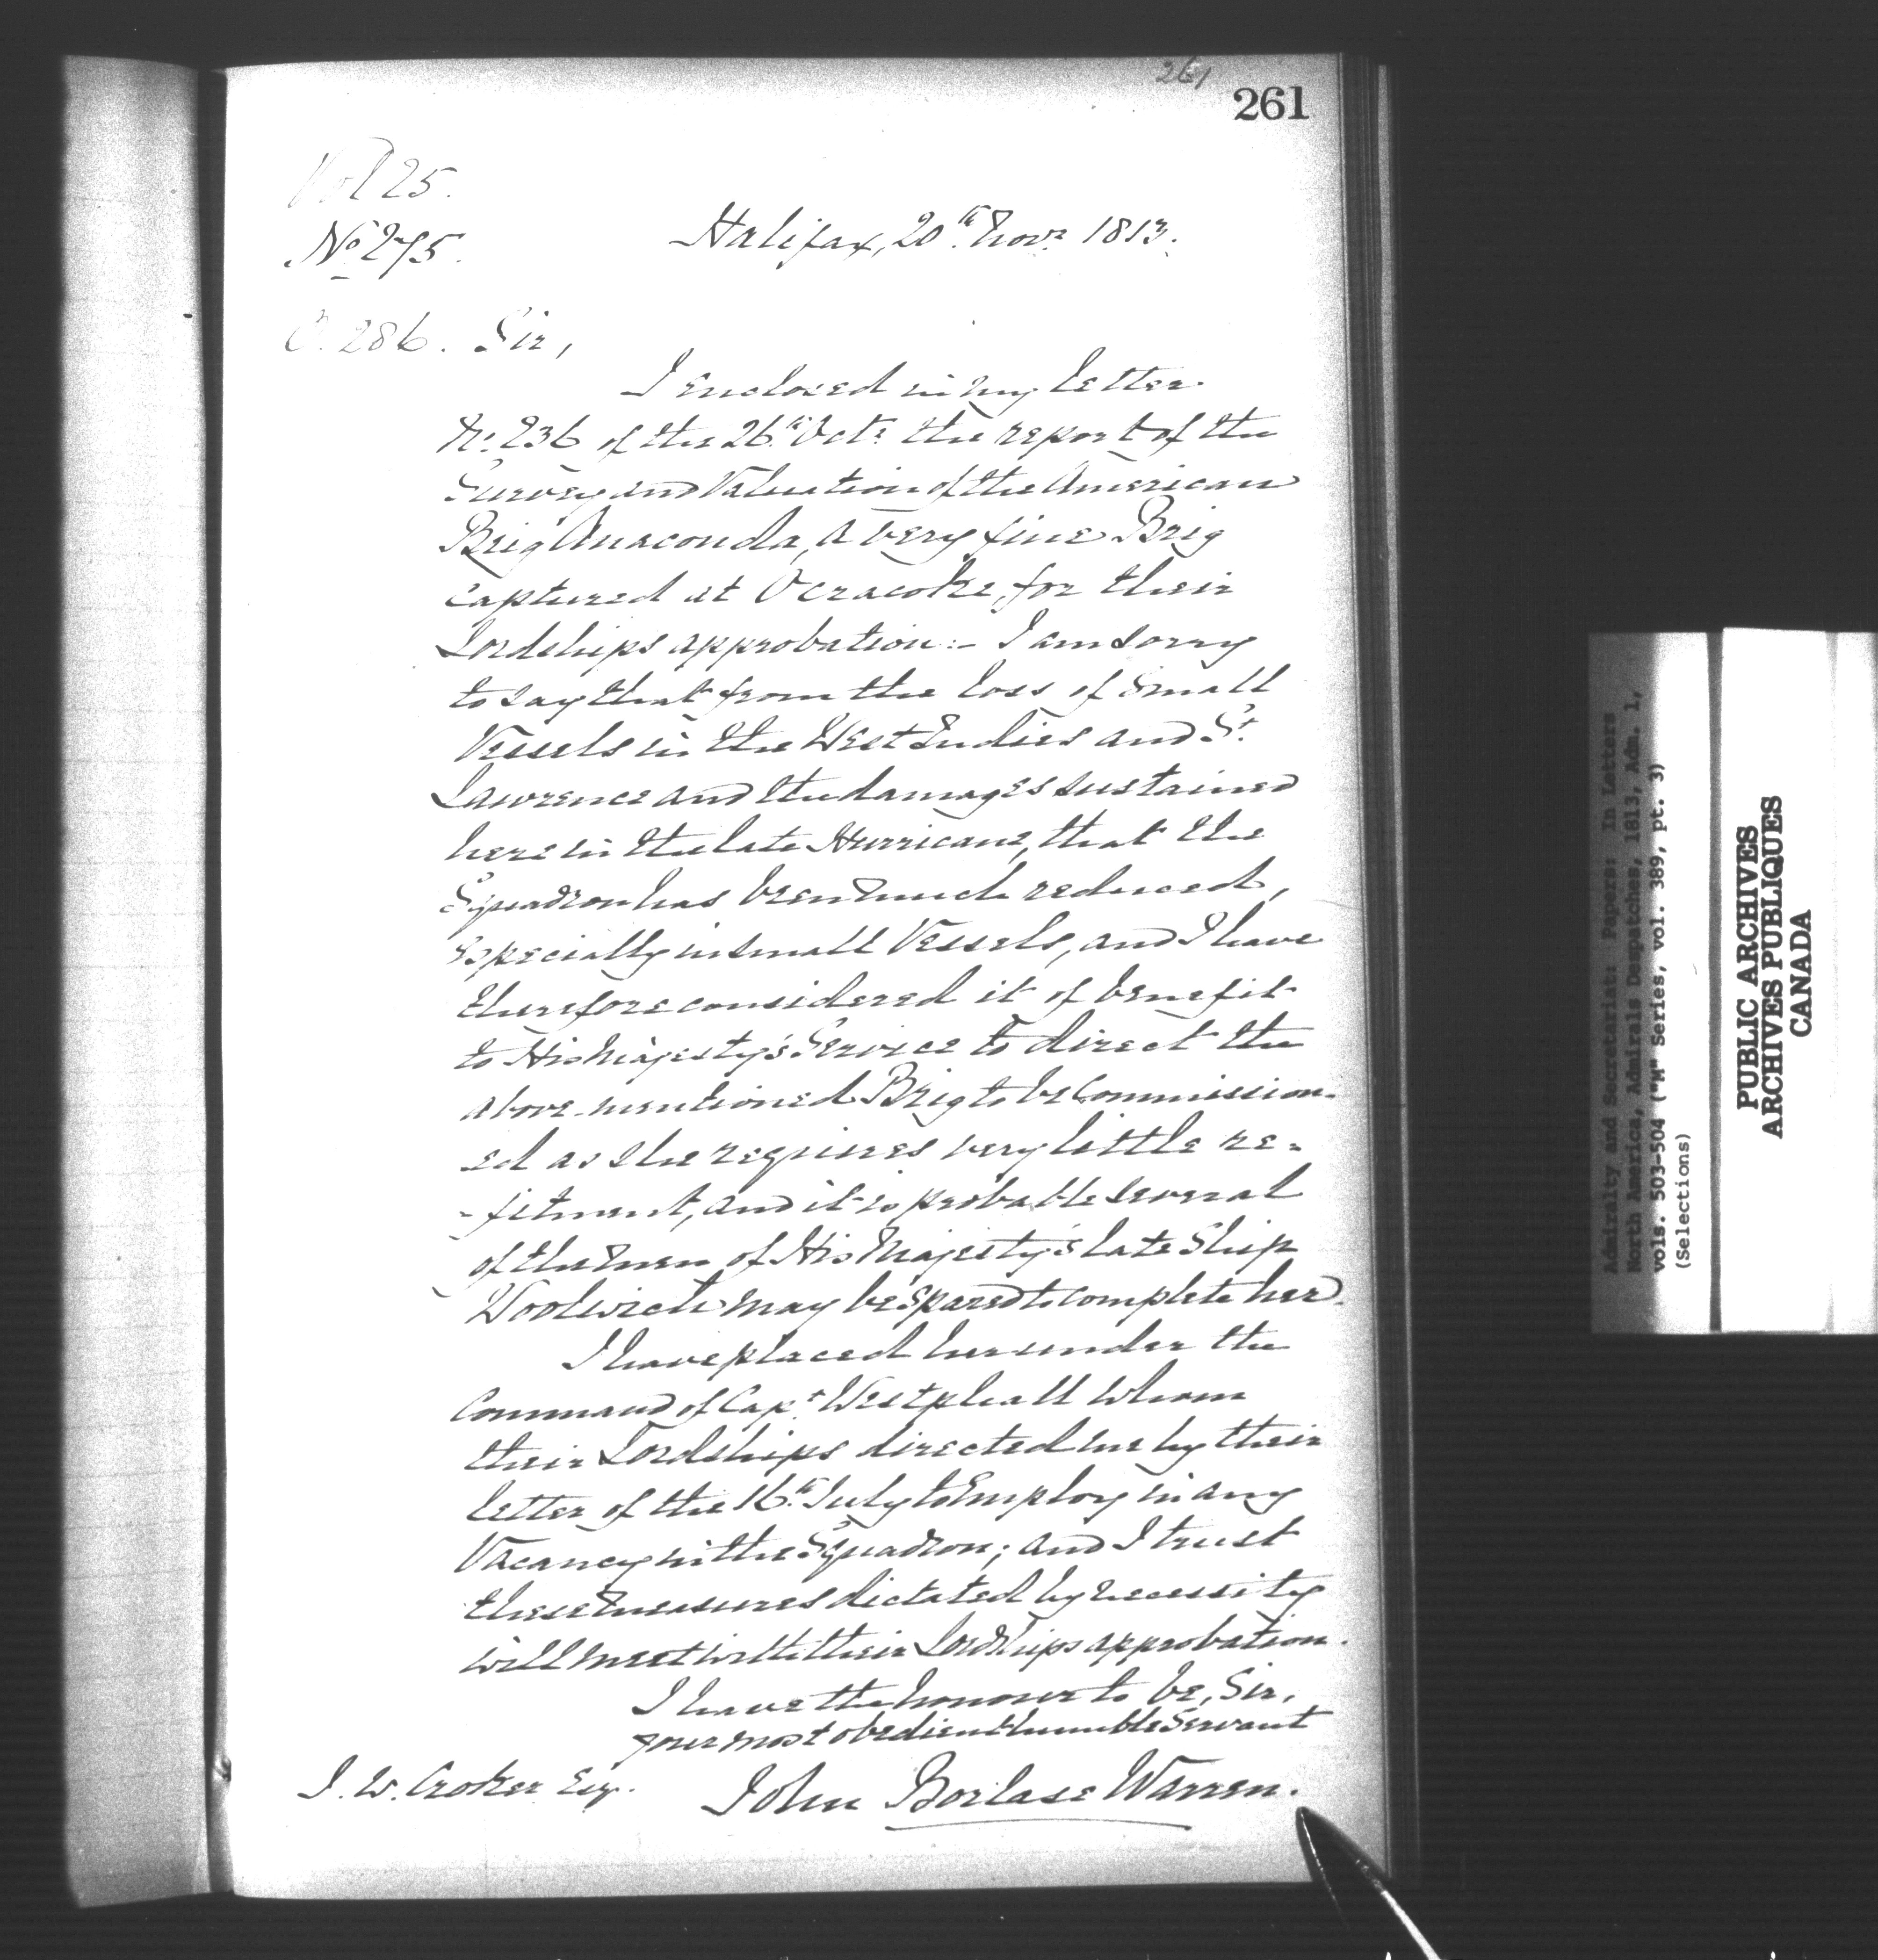 261
261
Vol 25.
No 275.
Halifax, 20th Novr 1813.
C. 286. Sir,
I enclosed in my letter
No. 236 of the 26th Octr the report of the
Survey and Valuation of the American
Brig Anaconda, a very fine Brig
captured at Ocracoke, for their
Lordships approbation:- I am sorry
to say that from the loss of Small
Vessels in the West Indies and St.
Lawrence and the damages sustained
here in the late Hurricane, that the
Squadron has been much reduced,
especially in small Vessels, and I have
therefore considered it of benefit
to His Majesty's Service to direct the
above-mentioned Brig to be Commission-
ed as she requires very little re=
=fitment, and it is probable several
of the men of His Majesty's late Ship
Woolwich may be spared to complete her.
I have placed her under the
Command of Capt. Westphall whom
their Lordships directed me by their
letter of the 16th July to Employ in any
Vacancy in the Squadron; and I trust
these measures dictated by necessity
will meet with their Lordships approbation.
I have the honour to be, Sir,
your most obedient humble Servant
J. W. Croker Esq. John Borlase Warren.
Admiralty and Secretariat: Papers: In Letters
North America, Admirals Despatches, 1813, Adm. 1,
vols. 503-504 ("M" Series, vol. 389, pt. 3)
(Selections)
PUBLIC ARCHIVES
ARCHIVES PUBLIQUES
CANADA